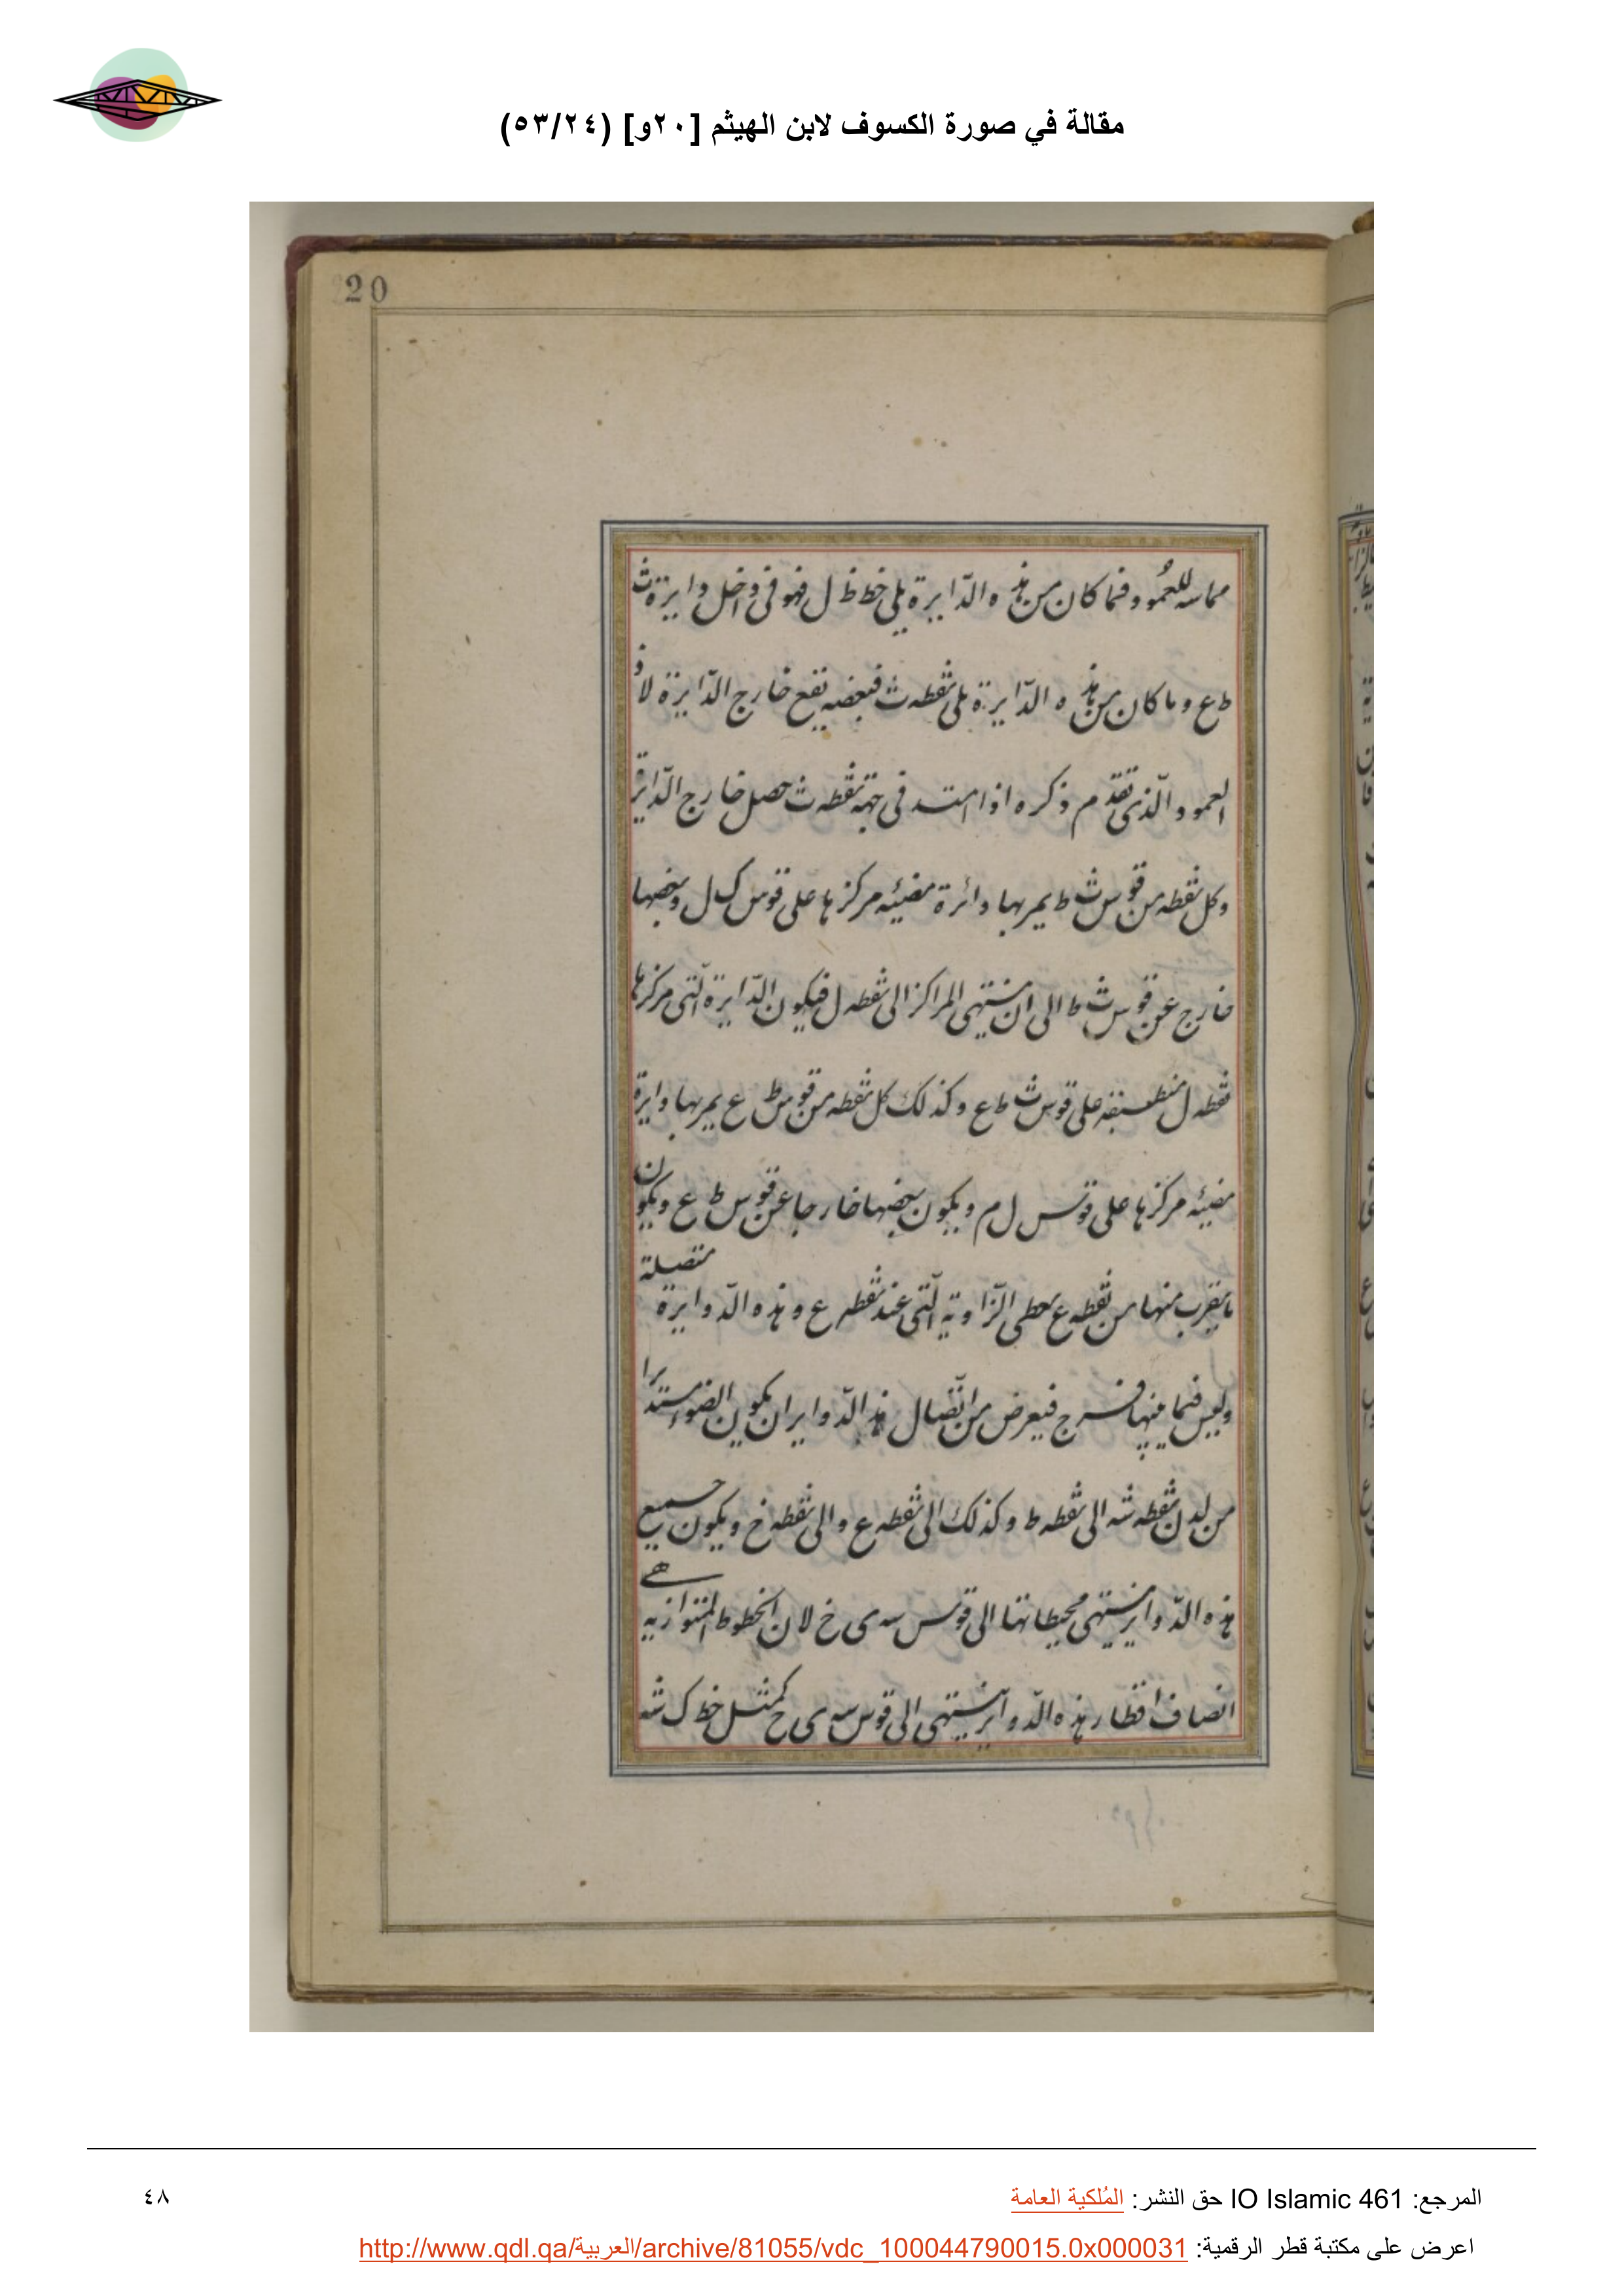 مقالة في صورة الكسوف لابن الهيثم [٢٠و] (٥٣/٢٤)
20
مماسه للعمود فما كان من هذه الدّايرة يلى خط ظ ل فهو فى داخل دايرة ث
ط ع وما كان من هذه الدّايرة يلى نقطه ث فبعضه يقع خارج الدّايرة لان
العمود الّذى تقدّم ذكره اذا امتد فى جهة نقطه ث حصل خارج الدّايرة
وكل نقطه من قوس ث ط يمر بها دائرة مضيئه مركزها على قوس ك ل وبعضها
خارج عن قوس ث ط الى ان ينتهى المراكز الى نقطه ل فيكون الدّايرة الّتى مركزها
نقطه ل منطبقه على قوس ث ط ع وكذلك كل نقطه من قوس ط ع يمر بها دايرة
مضيئه مركزها على قوس ل م ويكون بعضها خارجا عن قوس ط ع ويكون
ما يقرب منها من نقطه ع يعطى الزّاوية الّتى عند نقطه ع وهذه الدّوايرة متصلة
وليس فيما بينها فرج فيعرض من اتّصال هذه الدّواير ان يكون الضوء مستديرا
من لدن نقطه شه الى نقطه ط وكذلك الى نقطه ع والى نقطه خ ويكون جميع
هذه الدّواير ينتهى محيطاتها الى قوس سه ى خ لان الخطوط المتوازيه هى
انصاف اقطار هذه الدّواير ينتهى الى قوس سه ى خ كمثل خط ك شه
المرجع: IO Islamic 461 حق النشر: المُلكية العامة
٤٨
اعرض على مكتبة قطر الرقمية: http://www.qdl.qa/العربية/archive/81055/vdc_100044790015.0x000031